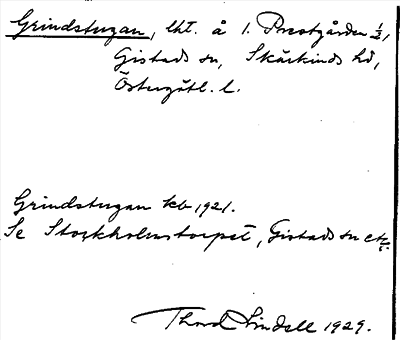 Grindstugan, lht. å 1. Prostgården ½,
Gistads sn, Skärkinds hd,
Östergötl. l.
Grindstugan kb 1921.
Se Stockholmstorpet, Gistads sn etc.
Thord Lindell 1929.